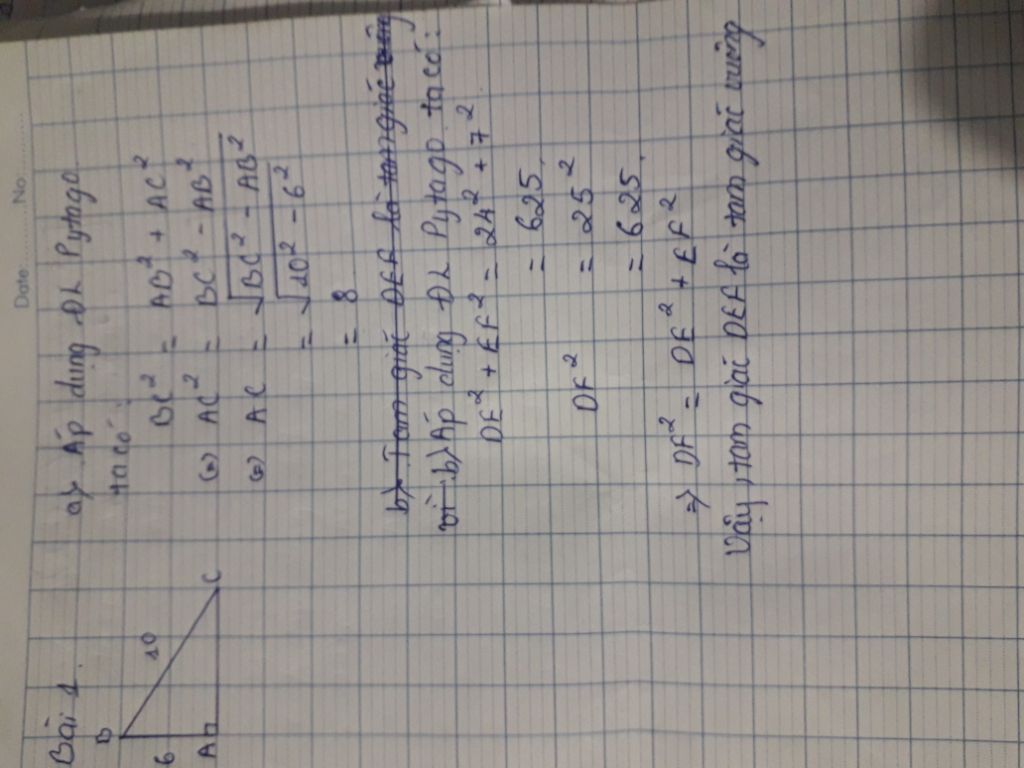 Date ........... No: ...........
Bài 1
B
6
10
A
C
a) Áp dụng ĐL Pytago
ta có:
BC² = AB² + AC²
(=) AC² = BC² - AB²
(=) AC = √BC² - AB²
= √10² - 6²
= 8
b) Tam giác DEF là tam giác vuông
vì b) Áp dụng ĐL Pytago ta có:
DE² + EF² = 24² + 7²
= 625.
DF² = 25²
= 625.
=> DF² = DE² + EF²
Vậy, tam giác DEF là tam giác vuông